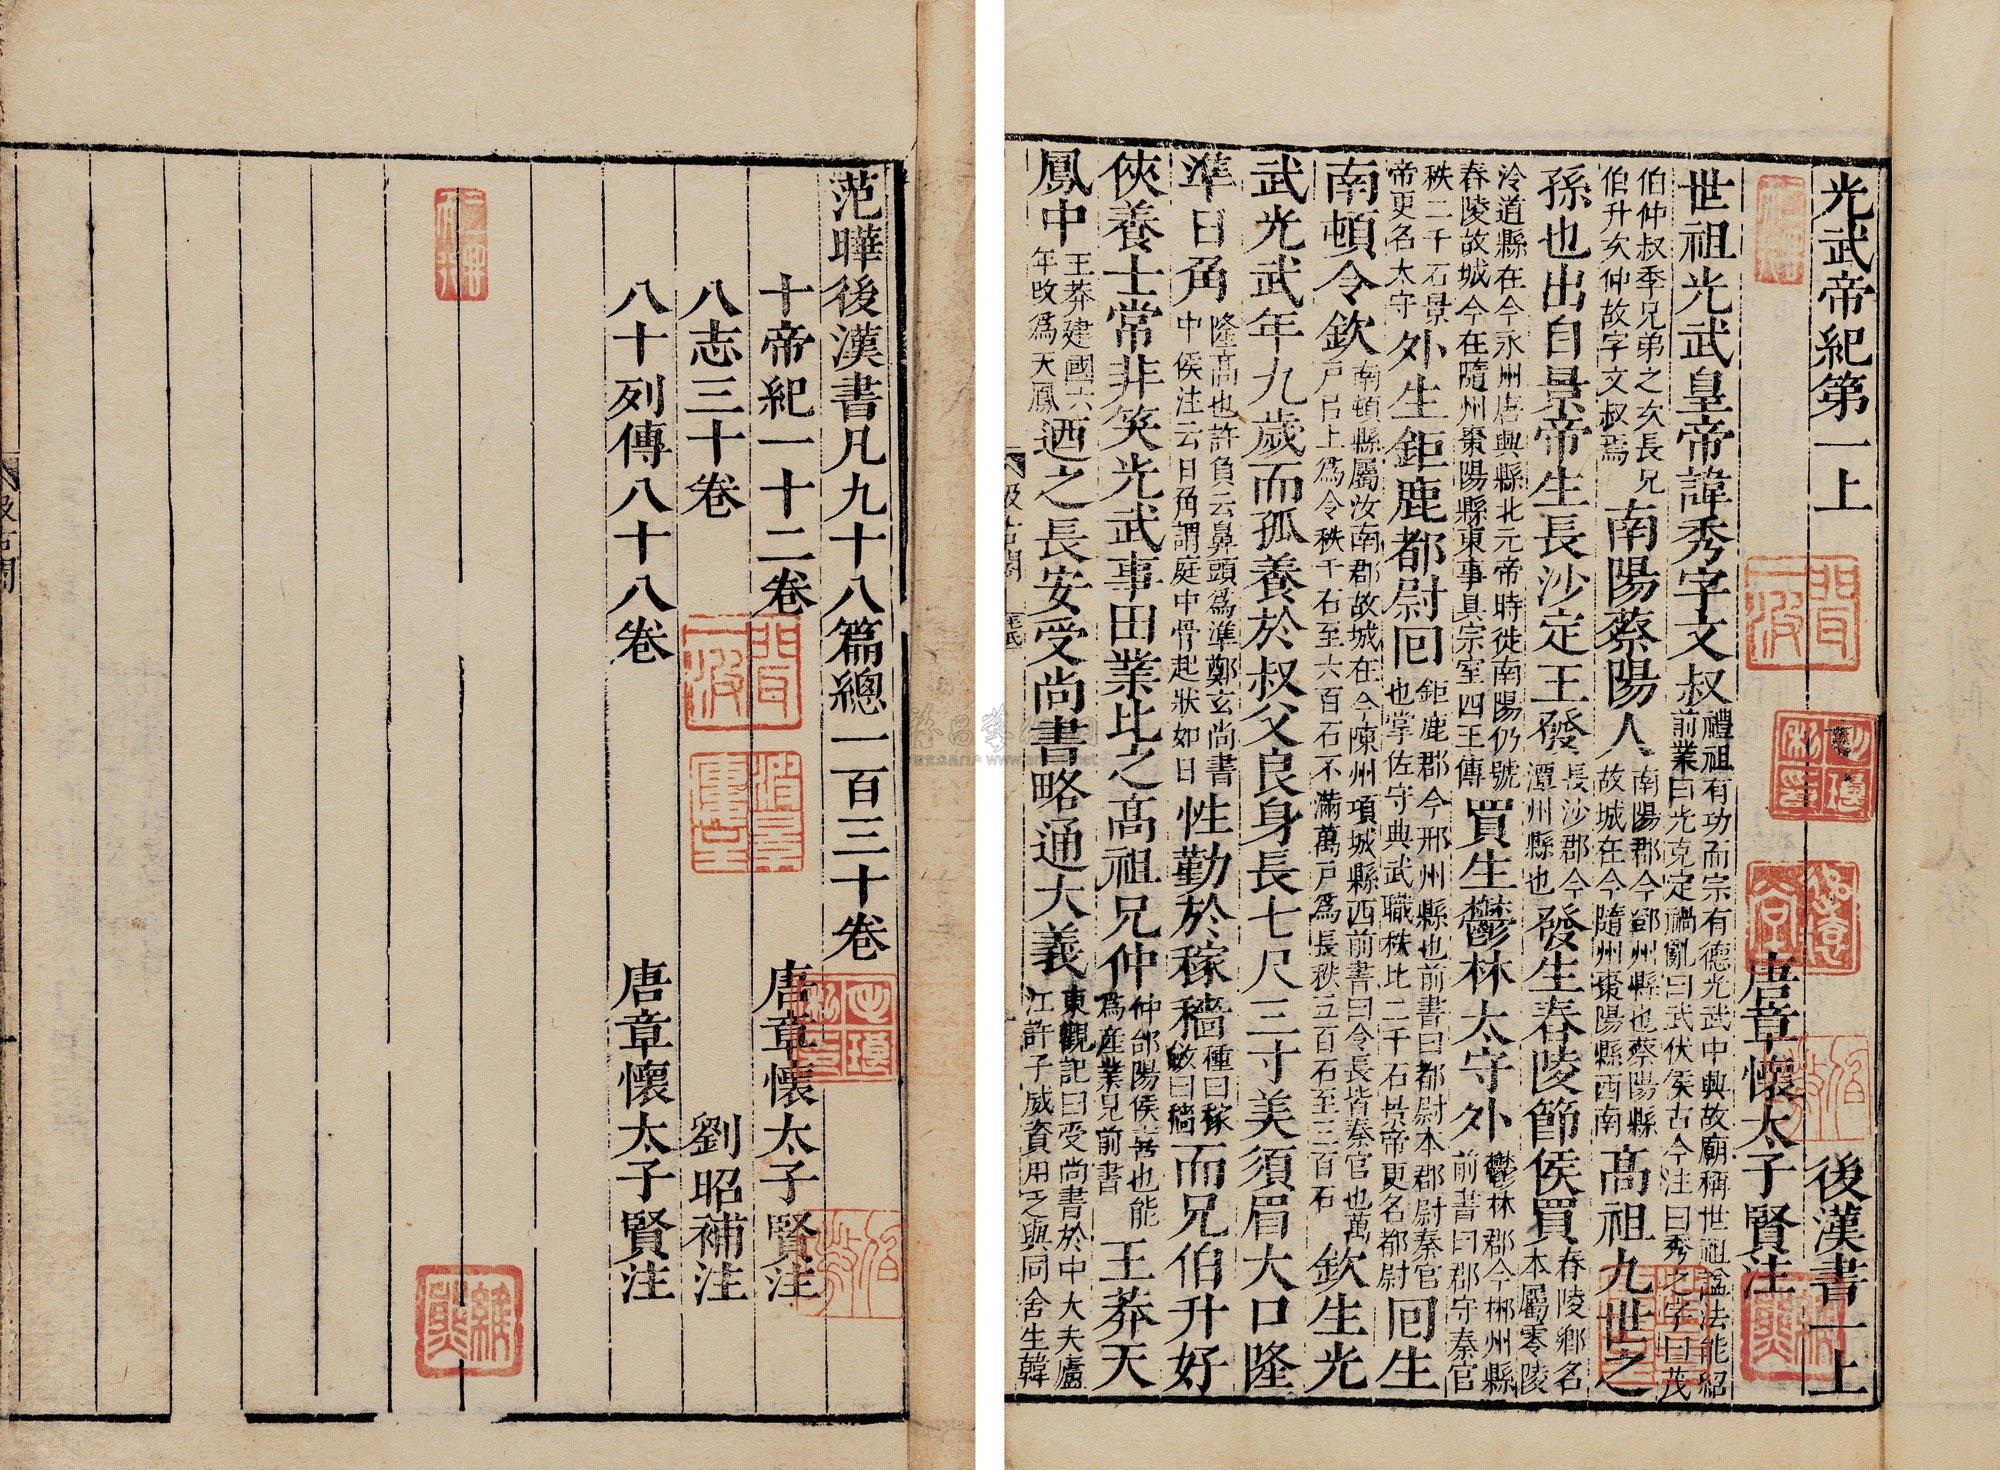 光武帝紀第一上　後漢書一上
唐章懷太子賢注
世祖光武皇帝諱秀字文叔禮祖有功而宗有德光武中興故廟稱世祖諡法能紹前業曰光克定禍亂曰武伏侯古今注曰秀之字曰茂
伯仲叔季兄弟之次長兄伯升次仲故字文叔焉南陽蔡陽人南陽郡今鄧州縣也蔡陽縣故城在今隨州棗陽縣西南高祖九世之
孫也出自景帝生長沙定王發長沙郡今潭州縣也發生舂陵節侯買舂陵鄉名本屬零陵
泠道縣在今永州唐興縣北元帝時徙南陽仍號舂陵故城今在隨州棗陽縣東事具宗室四王傳買生鬱林太守外鬱林郡今郴州縣前書曰郡守秦官
秩二千石景帝更名太守外生鉅鹿都尉回鉅鹿郡今邢州縣也前書曰都尉本郡尉秦官也掌佐守典武職秩比二千石景帝更名都尉回生
南頓令欽南頓縣屬汝南郡故城在今陳州項城縣西前書曰令長皆秦官也萬戶已上爲令秩千石至六百石不滿萬戶爲長秩五百石至三百石欽生光
武光武年九歲而孤養於叔父良身長七尺三寸美須眉大口隆
準日角隆高也許負云鼻頭爲準鄭玄尚書中侯注云日角謂庭中骨起狀如日性勤於稼穡種曰稼斂曰穡而兄伯升好
俠養士常非笑光武事田業比之高祖兄仲仲郃陽侯喜也能爲產業見前書王莽天
鳳中王莽建國六年改爲天鳳迺之長安受尚書略通大義東觀記曰受尚書於中大夫廬江許子威資用乏與同舍生韓
范曄後漢書凡九十八篇總一百三十卷
十帝紀一十二卷　唐章懷太子賢注
八志三十卷　劉昭補注
八十列傳八十八卷　唐章懷太子賢注
汲古閣